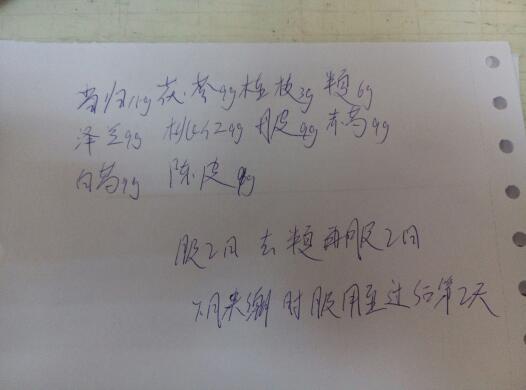 当归11g 茯苓9g 桂枝3g 半夏6g
泽兰9g 桃仁9g 丹皮9g 赤芍9g
白芍9g 陈皮9g
服2日 去半夏再服2日
下月来潮时服用至过后第2天